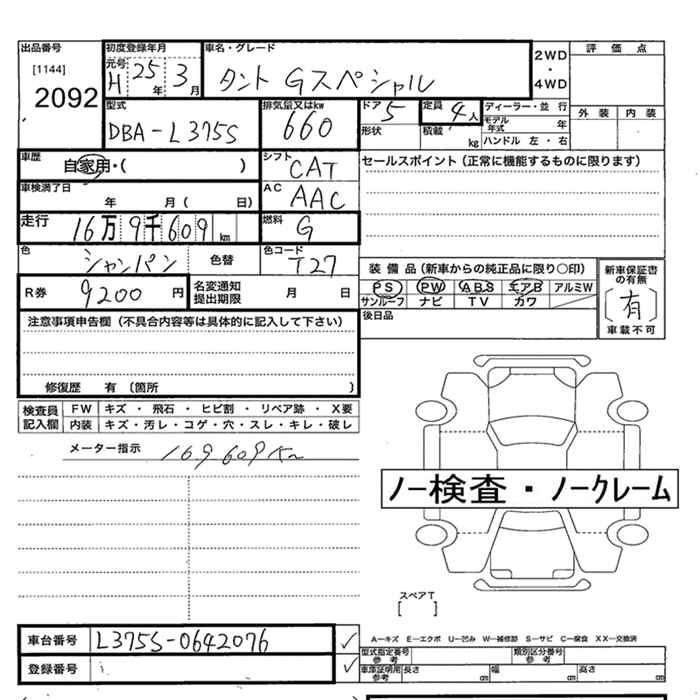 出品番号 初度登録年月 車名・グレード 2WD・4WD 評価点
[1144] 元号 H 25年 3月 タント Gスペシャル
2092
型式 排気量又はkw ドア 5 定員 4人 ディーラー・並行 外装 内装
DBA-L375S 660 形状 積載 kg モデル年式 年
ハンドル 左・右
車歴 自家用・( ) シフト CAT セールスポイント(正常に機能するものに限ります)
車検満了日 年 月( 日) AC AAC
走行 16万9千609km 燃料 G
色 シャンパン 色替 色コード T27
装備品(新車からの純正品に限り○印) 新車保証書の有無
R券 9200円 名変通知提出期限 月 日 PS PW ABS エアB アルミW 〔有〕
サンルーフ ナビ TV カワ 車載不可
注意事項申告欄(不具合内容等は具体的に記入して下さい) 後日品
修復歴 有 (箇所 )
検査員記入欄 FW キズ・飛石・ヒビ割・リペア跡・X要
内装 キズ・汚レ・コゲ・穴・スレ・キレ・破レ
メーター指示 169609Km
ノー検査・ノークレーム
スペアT
[ ]
車台番号 L375S-0642076 ✓ A—キズ E—エクボ U—凹み W—補修跡 S—サビ C—腐食 XX—交換済
型式指定番号 参考 類別区分番号 参考
登録番号 ✓ 車庫証明用参考 長さ cm 幅 cm 高さ cm